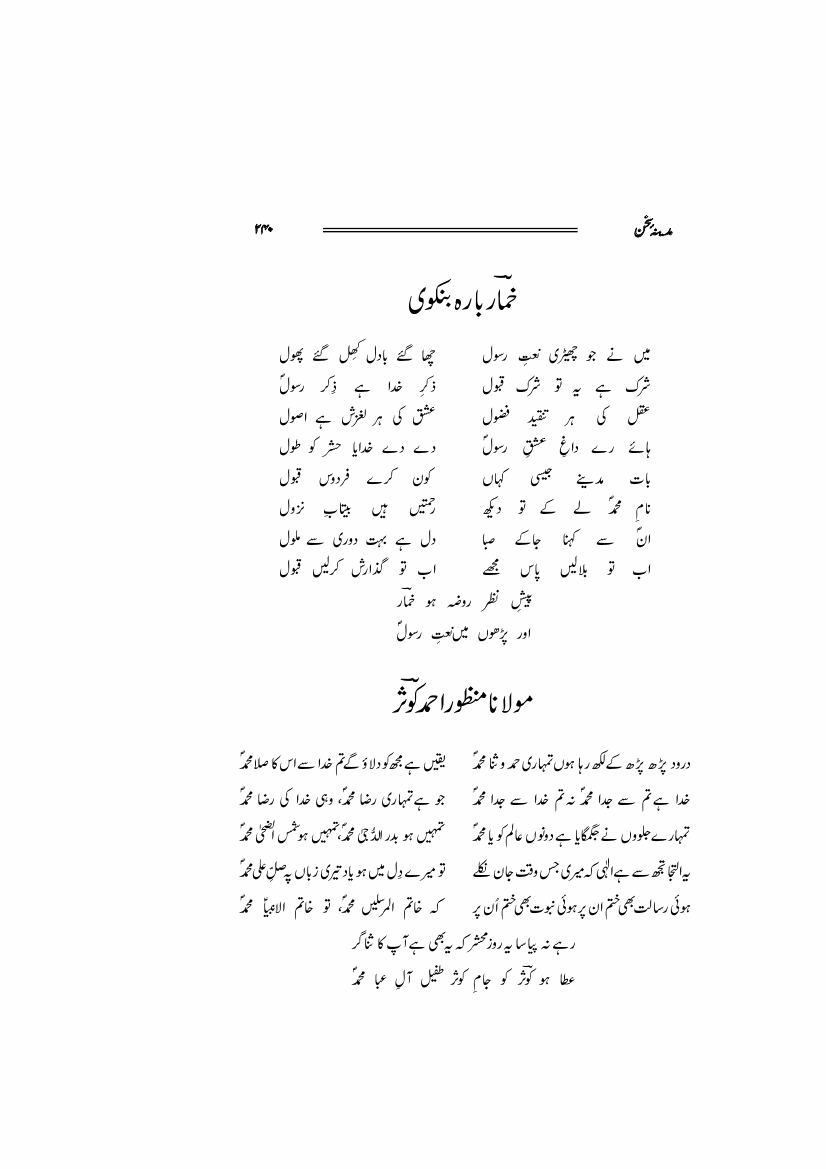 مدینۂ سخن ۲۴۰
خمارؔ بارہ بنکوی
میں نے جو چھیڑی نعتِ رسول چھا گئے بادل کھِل گئے پھول
شرک ہے یہ تو شرک قبول ذکرِ خدا ہے ذِکر رسولؐ
عقل کی ہر تنقید فضول عشق کی ہر لغزش ہے اصول
ہائے رے داغِ عشقِ رسولؐ دے دے خدایا حشر کو طول
بات مدینے جیسی کہاں کون کرے فردوس قبول
نامِ محمدؐ لے کے تو دیکھ رحمتیں ہیں بیتابِ نزول
انؐ سے کہنا جاکے صبا دل ہے بہت دوری سے ملول
اب تو بلالیں پاس مجھے اب تو گذارش کرلیں قبول
پیشِ نظر روضہ ہو خمارؔ
اور پڑھوں میں نعتِ رسولؐ
مولانا منظور احمد کوثرؔ
درود پڑھ پڑھ کے لکھ رہا ہوں تمہاری حمد و ثنا محمدؐ یقیں ہے مجھ کو دلاؤ گے تم خدا سے اس کا صلا محمدؐ
خدا ہے تم سے جدا محمدؐ نہ تم خدا سے جدا محمدؐ جو ہے تمہاری رضا محمدؐ، وہی خدا کی رضا محمدؐ
تمہارے جلووں نے جگمگایا ہے دونوں عالم کو یا محمدؐ تمہیں ہو بدر الدُّجیٰ محمدؐ، تمہیں ہو شمس الضحیٰ محمدؐ
یہ التجا تجھ سے ہے الٰہی کہ میری جس وقت جان نکلے تو میرے دِل میں ہو یاد تیری زباں پہ صلِّ علی محمدؐ
ہوئی رسالت بھی ختم ان پر ہوئی نبوت بھی ختم اُن پر کہ خاتم المرسلیں محمدؐ، تو خاتم الانبیاؐ محمدؐ
رہے نہ پیاسا یہ روز محشر کہ یہ بھی ہے آپ کا ثناگر
عطا ہو کوثرؔ کو جامِ کوثر طفیل آلِ عبا محمدؐ